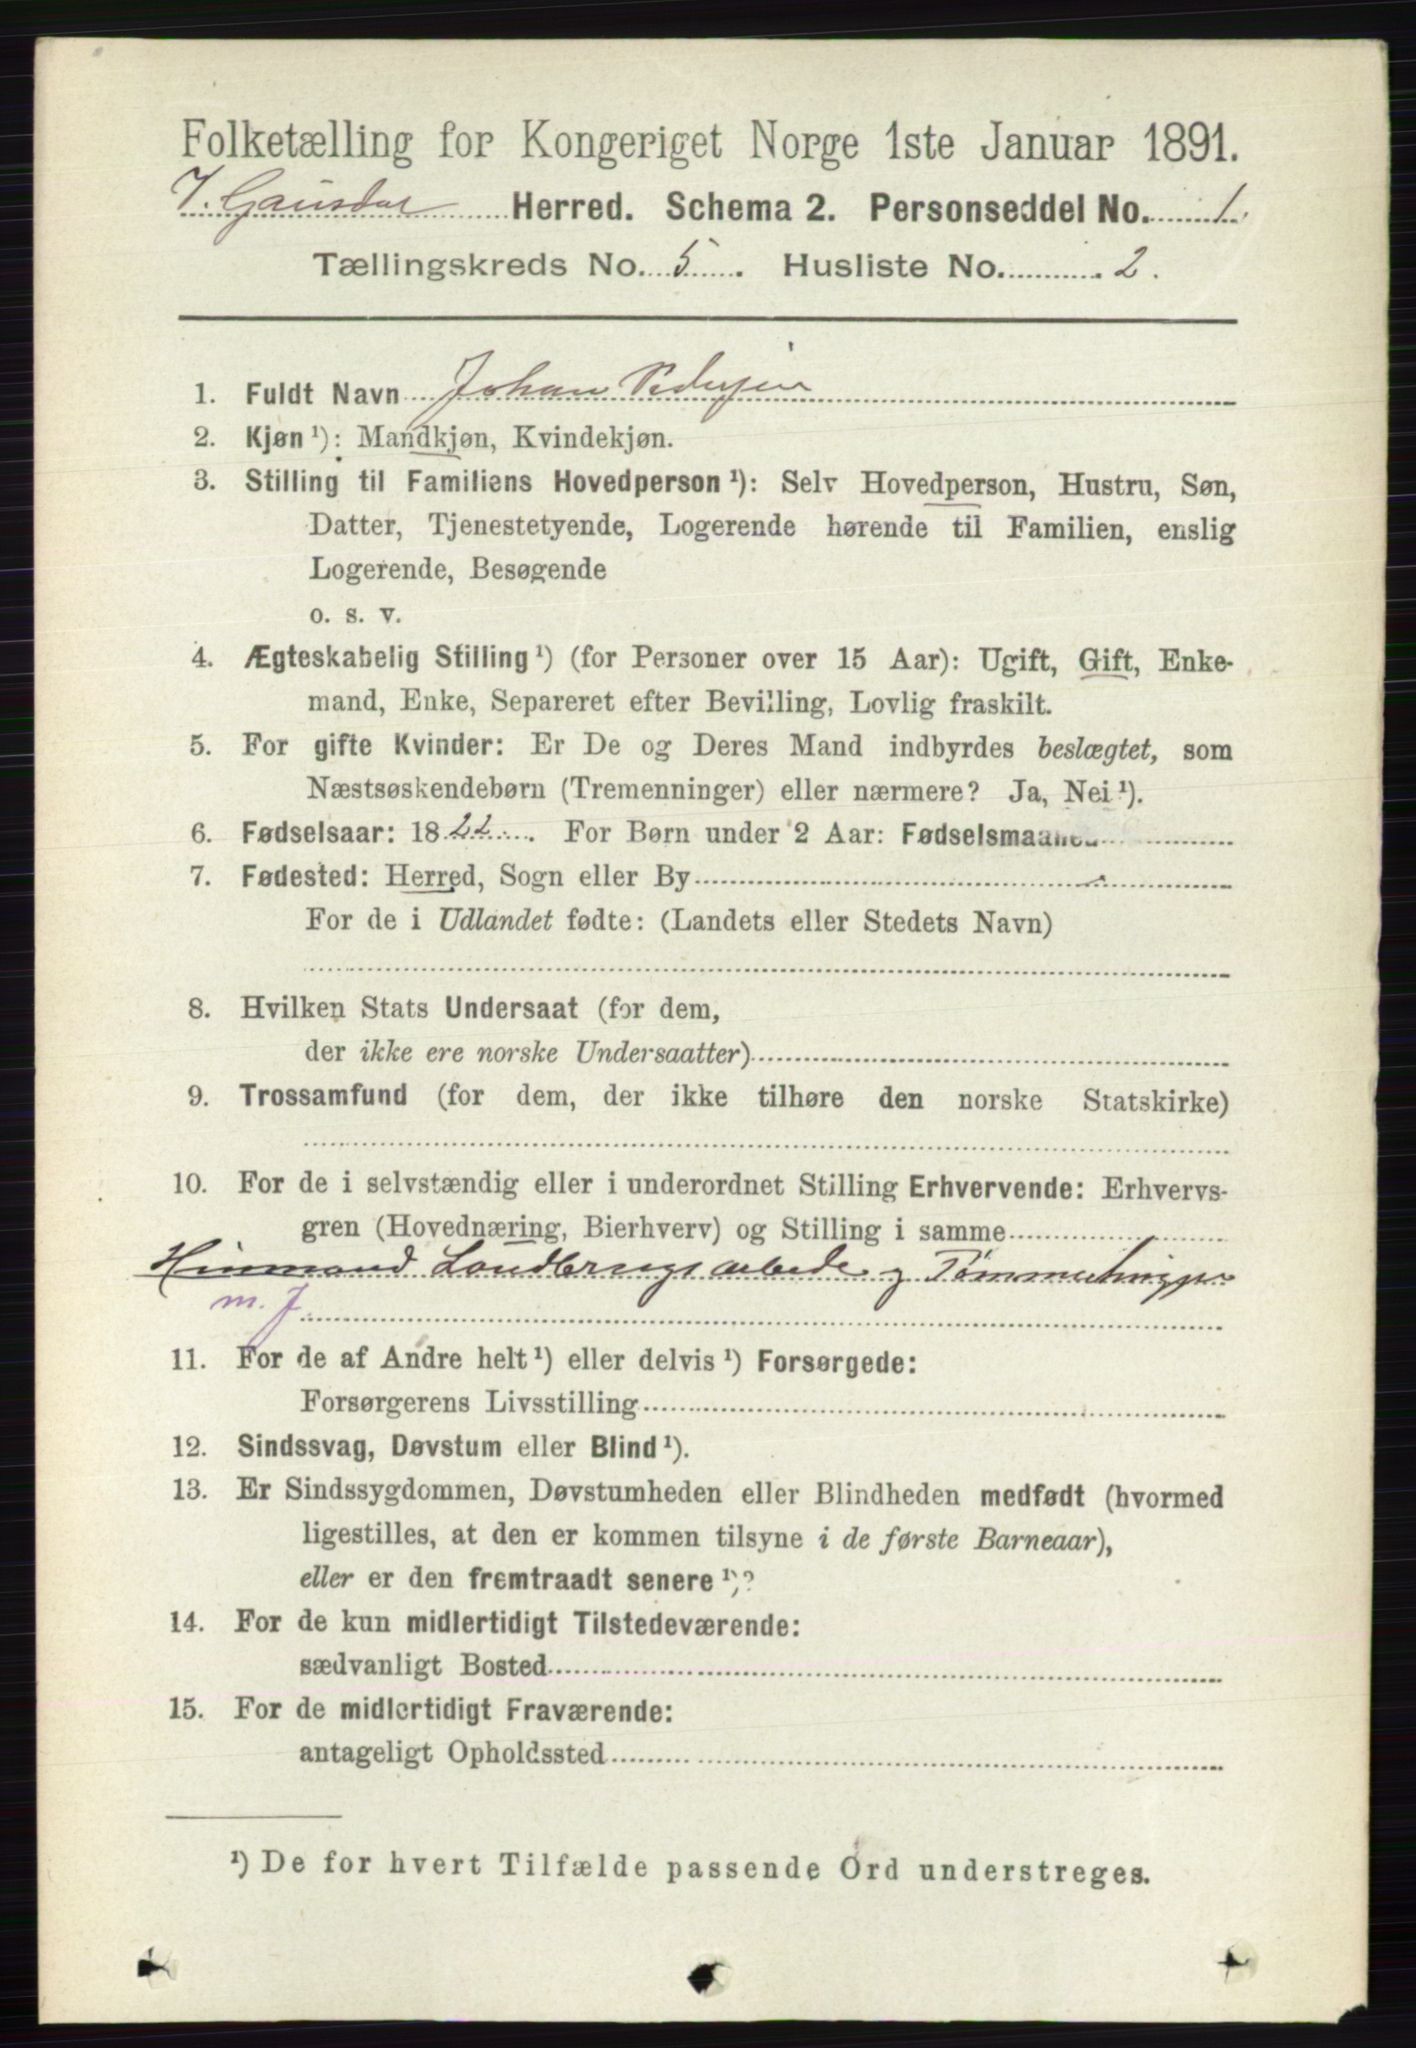 Folketælling for Kongeriget Norge 1ste Januar 1891.
V. Gausdal Herred. Schema 2. Personseddel No. 1.
Tællingskreds No. 5. Husliste No. 2.
1. Fuldt Navn Johan Pedersen
2. Kjøn¹): Mandkjøn, Kvindekjøn.
3. Stilling til Familiens Hovedperson¹): Selv Hovedperson, Hustru, Søn,
Datter, Tjenestetyende, Logerende hørende til Familien, enslig
Logerende, Besøgende
o. s. v.
4. Ægteskabelig Stilling¹) (for Personer over 15 Aar): Ugift, Gift, Enke-
mand, Enke, Separeret efter Bevilling, Lovlig fraskilt.
5. For gifte Kvinder: Er De og Deres Mand indbyrdes beslægtet, som
Næstsøskendebørn (Tremenninger) eller nærmere? Ja, Nei¹).
6. Fødselsaar: 1822. For Børn under 2 Aar: Fødselsmaaned
7. Fødested: Herred, Sogn eller By
For de i Udlandet fødte: (Landets eller Stedets Navn)
8. Hvilken Stats Undersaat (for dem,
der ikke ere norske Undersaatter)
9. Trossamfund (for dem, der ikke tilhøre den norske Statskirke)
10. For de i selvstændig eller i underordnet Stilling Erhvervende: Erhvervs-
gren (Hovednæring, Bierhverv) og Stilling i samme
Huusmand Landbrugsarbeide og Tømmerhugger
m. J
11. For de af Andre helt¹) eller delvis¹) Forsørgede:
Forsørgerens Livsstilling
12. Sindssvag, Døvstum eller Blind¹).
13. Er Sindssygdommen, Døvstumheden eller Blindheden medfødt (hvormed
ligestilles, at den er kommen tilsyne i de første Barneaar),
eller er den fremtraadt senere¹)?
14. For de kun midlertidigt Tilstedeværende:
sædvanligt Bosted
15. For de midlertidigt Fraværende:
antageligt Opholdssted
¹) De for hvert Tilfælde passende Ord understreges.